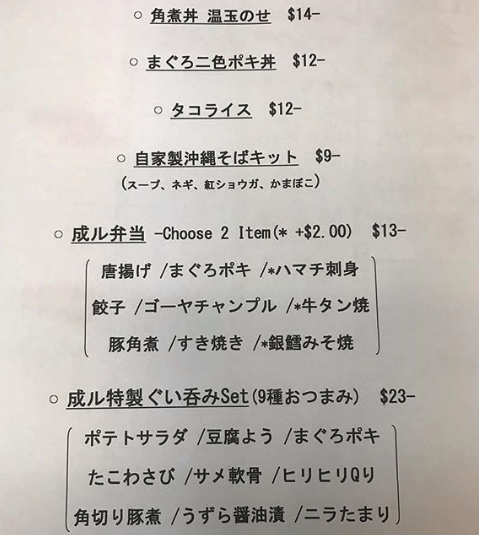 ○ 角煮丼 温玉のせ $14-
○ まぐろ二色ポキ丼 $12-
○ タコライス $12-
○ 自家製沖縄そばキット $9-
(スープ、ネギ、紅ショウガ、かまぼこ)
○ 成ル弁当 -Choose 2 Item(* +$2.00) $13-
唐揚げ /まぐろポキ /*ハマチ刺身
餃子 /ゴーヤチャンプル /*牛タン焼
豚角煮 /すき焼き /*銀鱈みそ焼
○ 成ル特製ぐい呑みSet(9種おつまみ) $23-
ポテトサラダ /豆腐よう /まぐろポキ
たこわさび /サメ軟骨 /ヒリヒリQり
角切り豚煮 /うずら醤油漬 /ニラたまり